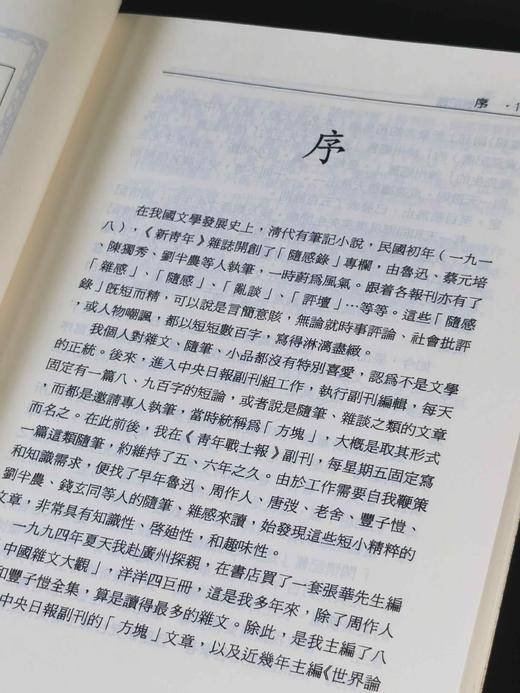 序
序
在我國文學發展史上，清代有筆記小說，民國初年（一九一
八），《新青年》雜誌開創了「隨感錄」專欄，由魯迅、蔡元培
、陳獨秀、劉半農等人執筆，一時蔚爲風氣。跟着各報刊亦有了
「雜感」、「隨感」、「亂談」、「評壇」…等等。這些「隨感
錄」旣短而精，可以說是言簡意賅，無論就時事評論、社會批評
，或人物嘲諷，都以短短數百字，寫得淋漓盡緻。
我個人對雜文、隨筆、小品都沒有特別喜愛，認爲不是文學
的正統。後來，進入中央日報副刊組工作，執行副刊編輯，每天
固定有一篇八、九百字的短論，或者說是隨筆、雜談之類的文章
，而都是邀請專人執筆，當時統稱爲「方塊」，大概是取其形式
而名之。在此前後，我在《靑年戰士報》副刊，每星期五固定寫
一篇這類隨筆，約維持了五、六年之久。由於工作需要自我鞭策
和知識需求，便找了早年魯迅、周作人、唐弢、老舍、豐子愷、
劉半農、錢玄同等人的隨筆、雜感來讀，始發現這些短小精粹的
文章，非常具有知識性、啓廸性，和趣味性。
一九九四年夏天我赴廣州探親，在書店買了一套張華先生編
中國雜文大觀」，洋洋四巨冊，這是我多年來，除了周作人
和豐子愷全集，算是讀得最多的雜文。除此，是我主編了八
中央日報副刊的「方塊」文章，以及近幾年主編《世界論